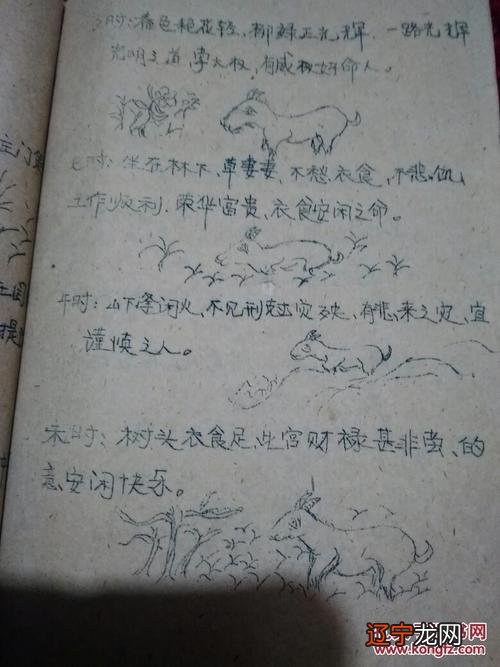 时：春色艳花轻、柳绿正光辉、一路光辉
光明之道掌大权，有威权好命人。
时：坐在林下、草萋萋、不愁衣食、不愁饥
工作顺利、荣华富贵、衣食安闲之命。
午时：山下逢闲火、不见刑克出灾殃、有悲来之灾、宜
谨慎之人。
未时：树头衣食足、生宫财禄甚非常、的
意安闲快乐。
主门
辽宁龙网
www.kongfz.com